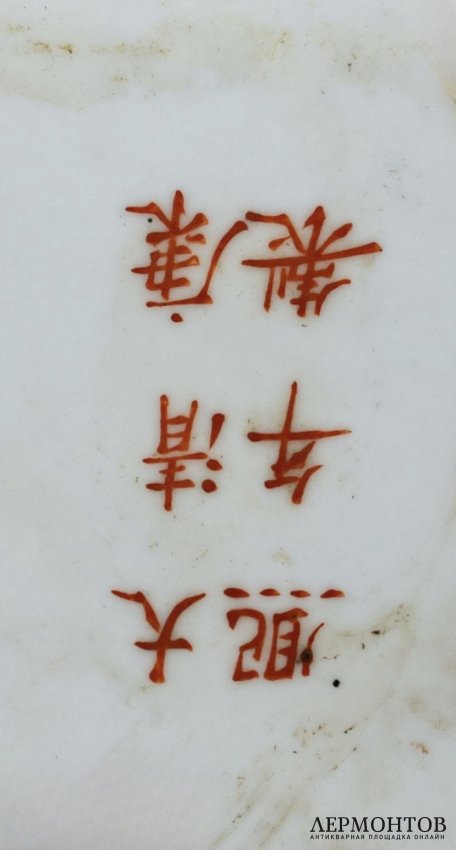 大清康
熙年製
ЛЕРМОНТОВ
АНТИКВАРНАЯ ПЛОЩАДКА ОНЛАЙН